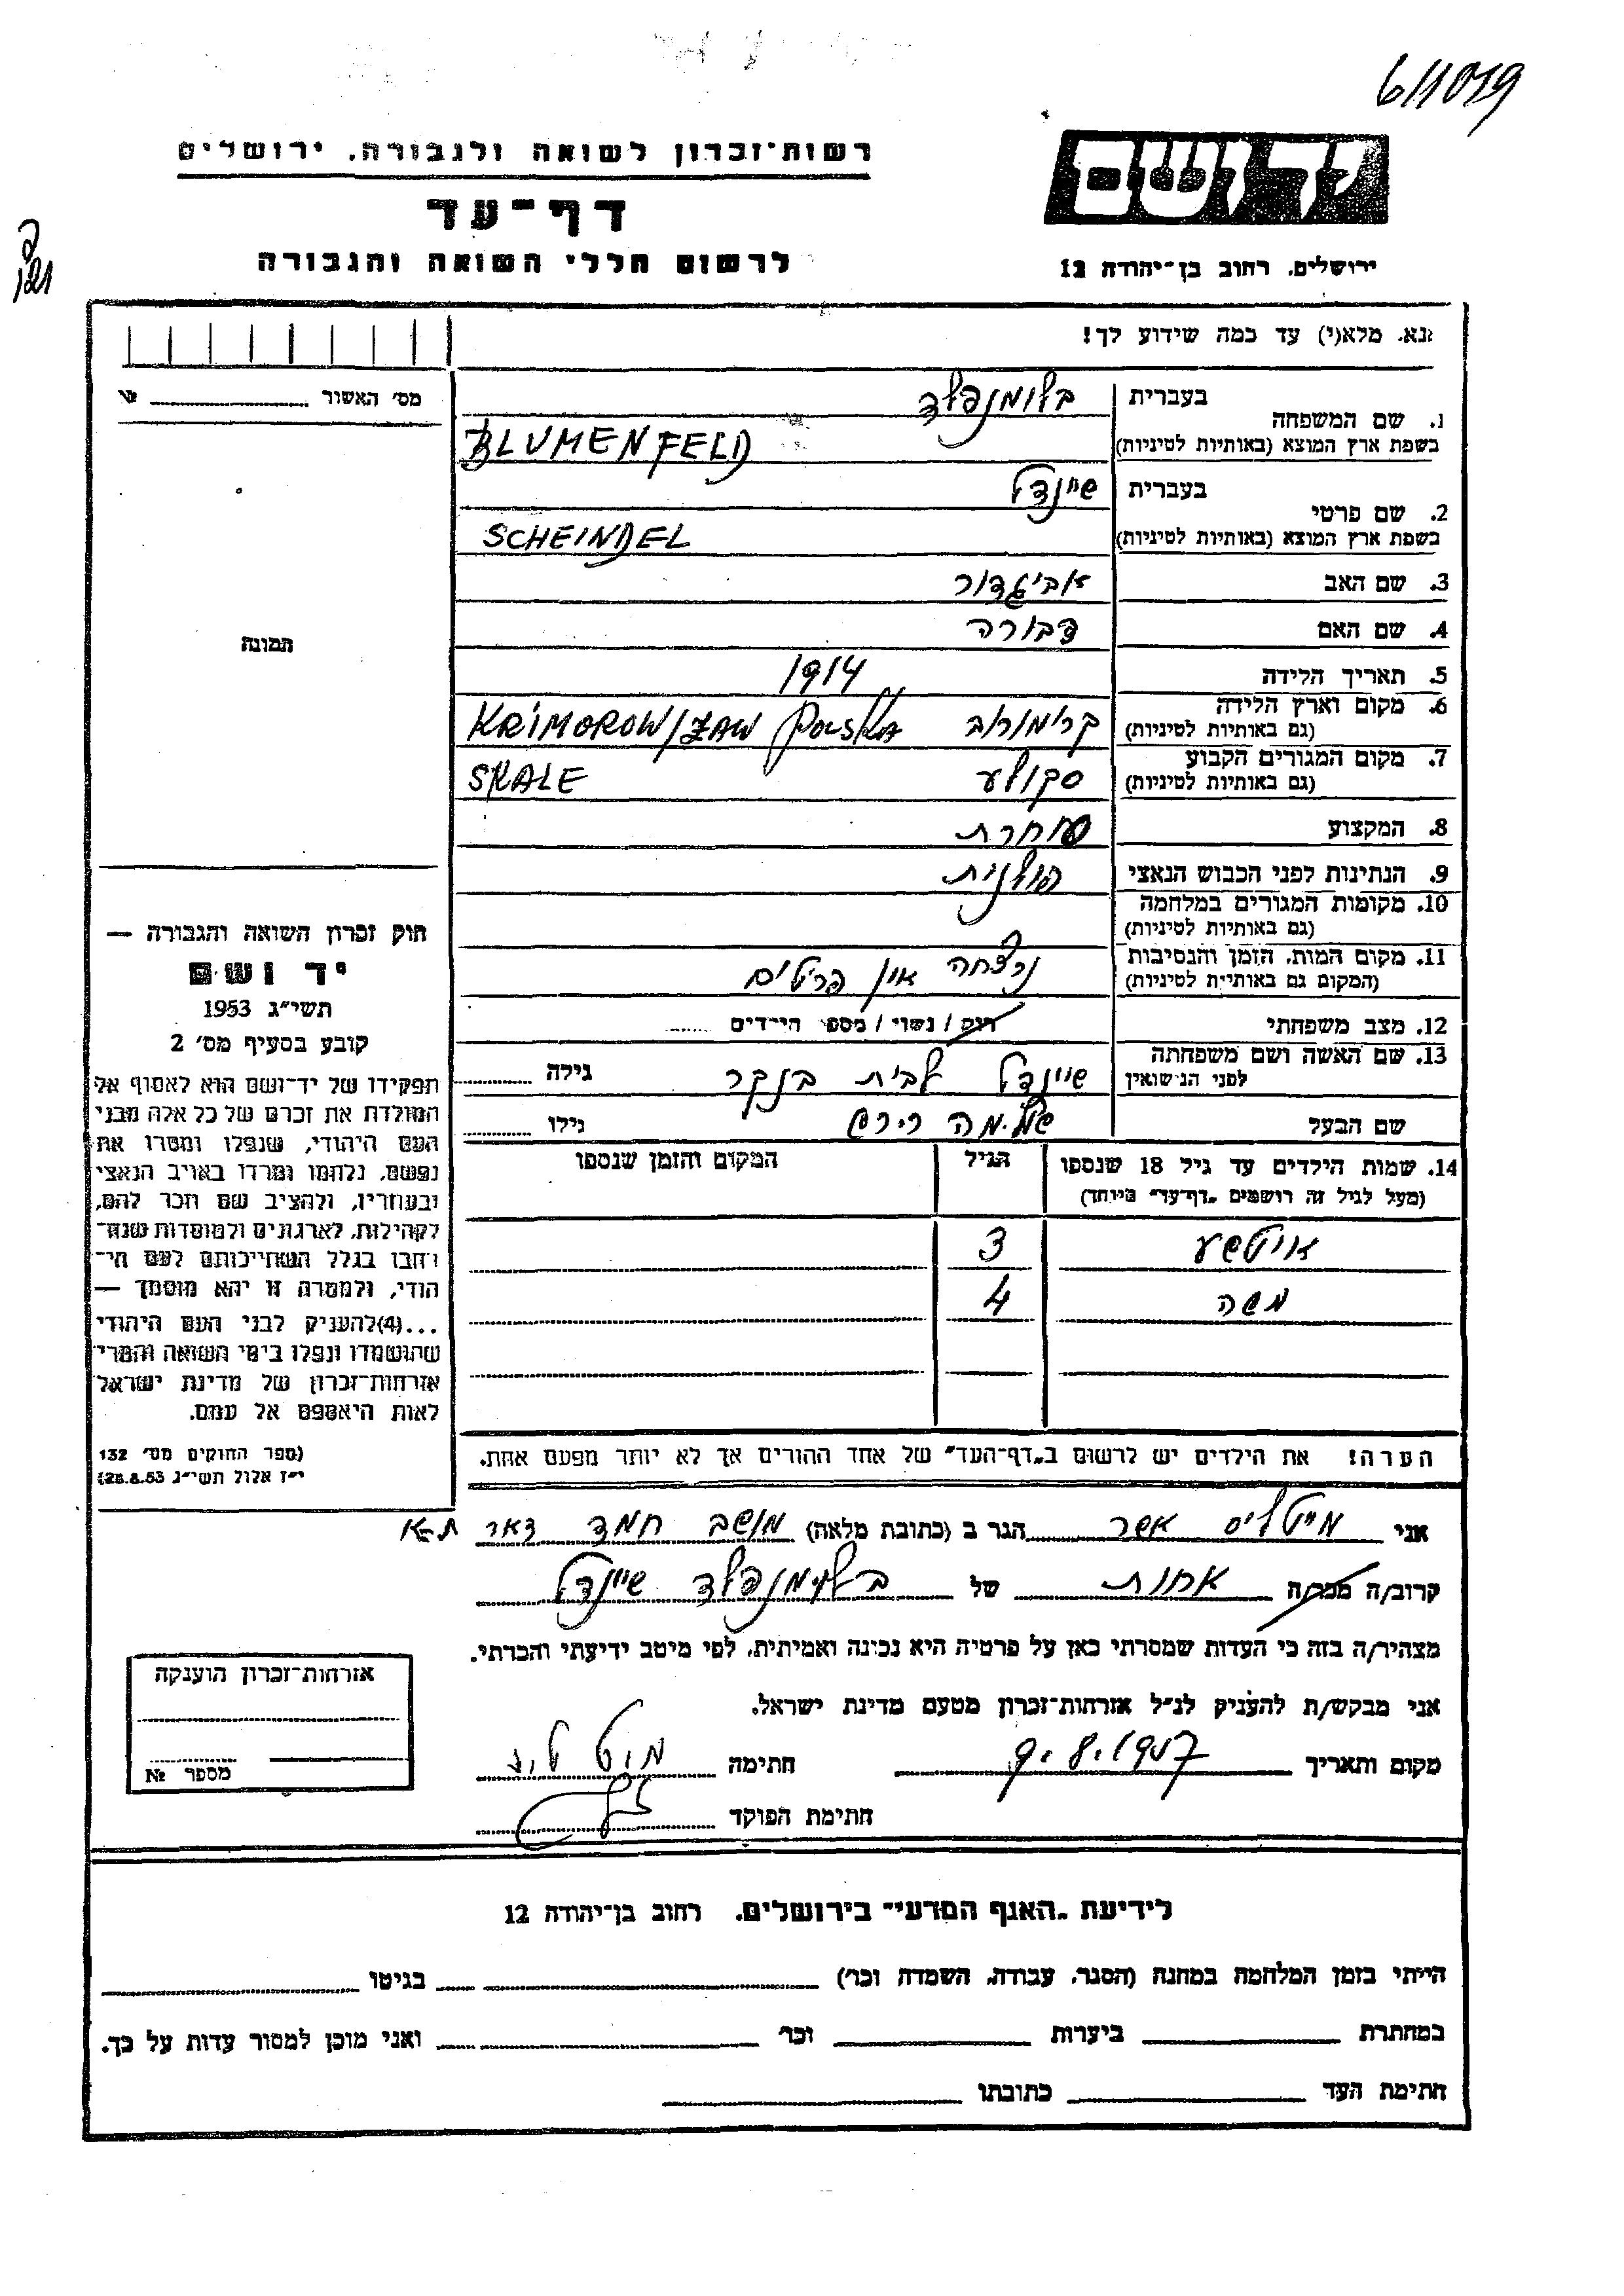 611079
רשות־זכרון לשואה ולגבורה, ירושלים
דף־עד
לרשום חללי השואה והגבורה
ידושם
ירושלים, רחוב בן־יהודה 12
נא, מלא(י) עד כמה שידוע לך!
מס׳ האשור № 
1. שם המשפחה בעברית בלומנפלד
בשפת ארץ המוצא (באותיות לטיניות) BLUMENFELD
2. שם פרטי בעברית שיינדל
בשפת ארץ המוצא (באותיות לטיניות) SCHEINDEL
3. שם האב אביגדור
4. שם האם דבורה
תמונה
5. תאריך הלידה 1914
6. מקום וארץ הלידה (גם באותיות לטיניות) קרימורוב KRIMOROW/ZAW Polska
7. מקום המגורים הקבוע (גם באותיות לטיניות) סקולע SKALE
8. המקצוע סוחרת
9. הנתינות לפני הכבוש הנאצי פולנית
10. מקומות המגורים במלחמה (גם באותיות לטיניות)
11. מקום המות, הזמן והנסיבות (המקום גם באותיות לטיניות) נרצחה אין פרטים
12. מצב משפחתי רווק / נשוי / מספר הילדים
13. שם האשה ושם משפחתה לפני הנישואין שיינדל לבית בנקר גילה
שם הבעל שלמה הירש גילו
14. שמות הילדים עד גיל 18 שנספו הגיל המקום והזמן שנספו
(מעל לגיל זה רושמים „דף־עד״ מיוחד)
3
משה 4
הערה! את הילדים יש לרשום ב„דף־העד״ של אחד ההורים אך לא יותר מפעם אחת.
חוק זכרון השואה והגבורה —
יד ושם
תשי״ג 1953
קובע בסעיף מס׳ 2
תפקידו של יד־ושם הוא לאסוף אל
המולדת את זכרם של כל אלה מבני
העם היהודי, שנפלו ומסרו את
נפשם, נלחמו ומרדו באויב הנאצי
ובעוזריו, ולהציב שם וזכר להם,
לקהילות, לארגונים ולמוסדות שנח־
רבו בגלל השתייכותם לעם הי־
הודי, ולמטרה זו יהא מוסמך —
...(4)להעניק לבני העם היהודי
שהושמדו ונפלו בימי השואה והמרי
אזרחות־זכרון של מדינת ישראל
לאות היאספם אל עמם.
(ספר החוקים מס׳ 132
י״ז אלול תשי״ג 28.8.53)
אני מייטליס אשר הגר ב (כתובת מלאה) מושב חמד דאר ת-א
קרוב/ה מכר/ה אחות של בלומנפלד שיינדל
מצהיר/ה בזה כי העדות שמסרתי כאן על פרטיה היא נכונה ואמיתית, לפי מיטב ידיעתי והכרתי.
אני מבקש/ת להעניק לנ״ל אזרחות־זכרון מטעם מדינת ישראל.
מקום ותאריך 9.8.1957 חתימה
חתימת הפוקד
אזרחות־זכרון הוענקה
מספר №
לידיעת „האגף המדעי״ בירושלים, רחוב בן־יהודה 12
הייתי בזמן המלחמה במחנה (הסגר, עבודה, השמדה וכו׳) בגיטו
במחתרת ביערות וכו׳ ואני מוכן למסור עדות על כך.
חתימת העד כתובתו